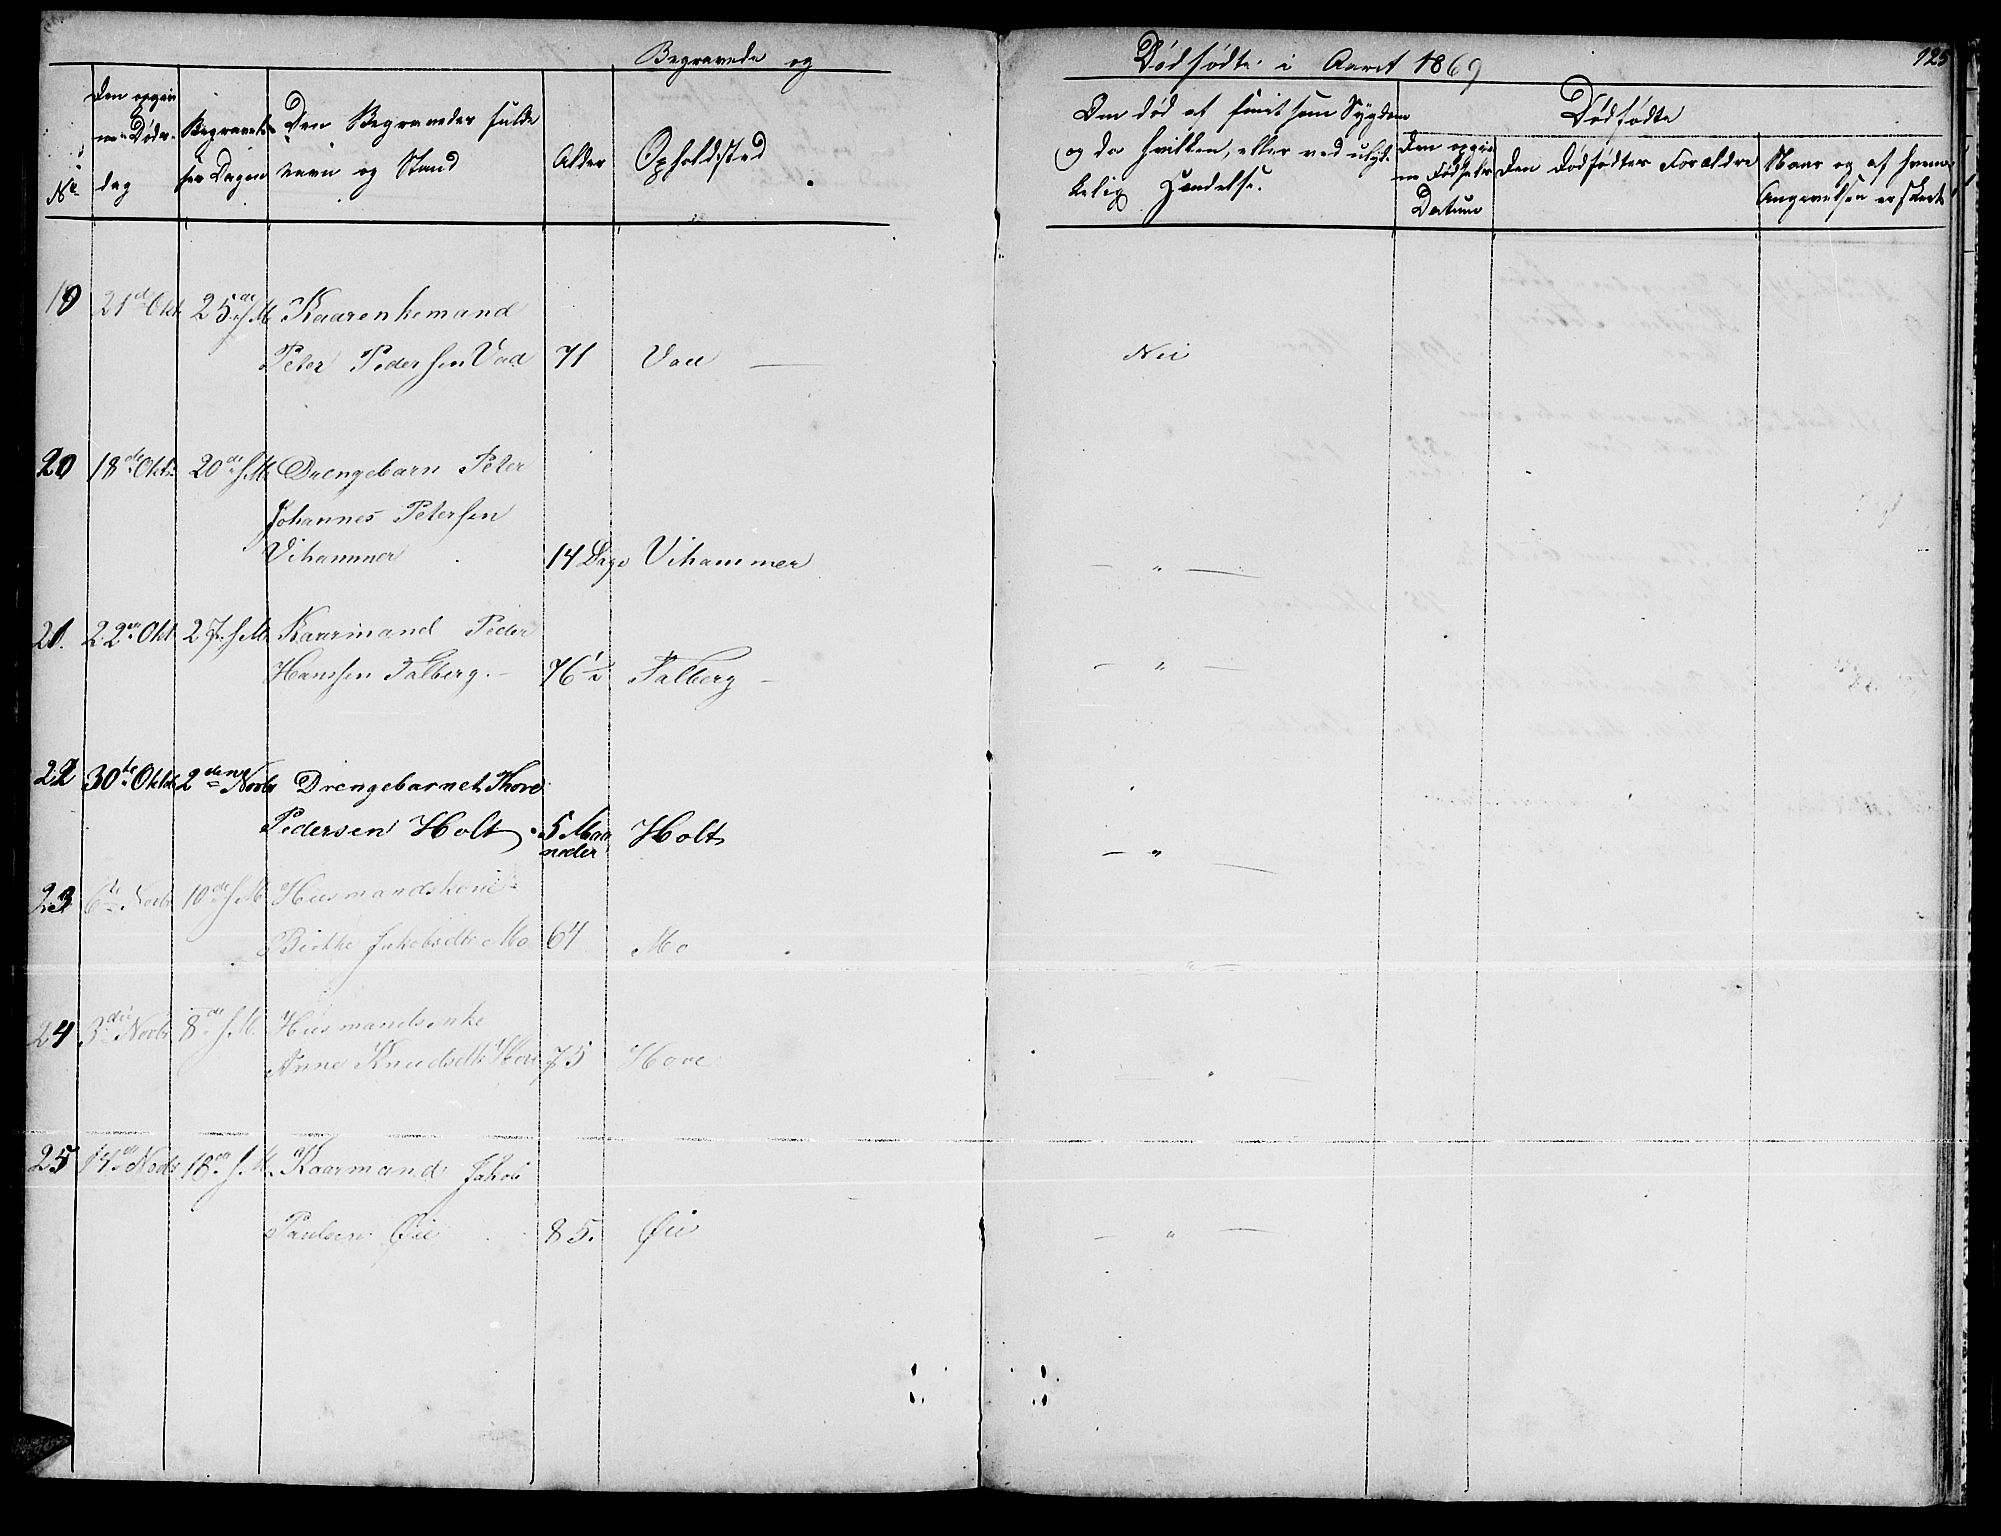 Begravede og
Dødfødte i Aaret 1869
125
No
Den opgivne Dødsdag
Begravelses Dagen
Den Begravedes fulde Navn og Stand
Alder
Opholdssted
Om død af smitsom Sygdom og da hvilken, eller ved ulykkelig Hændelse.
Dødfødte
Den opgivne Fødsels Datum
Den Dødfødtes Forældre
Naar og af hvem Angivelsen er skeet
19 21de Okt 25de s. M. Kaarenkemand
Peter Pedersen Vad 71 Vad — Nei
20 18de Oktb. 20de s. M. Drengebarn Peter
Johannes Petersen
Vihammer 14 Dage Vihammer — " —
21. 22de Okt. 27. s. M. Kaarmand Peder
Hansen Talberg. — 76 1/2 Talberg — — " —
22 30te Oktb 2den Novbr Drengebarnet Thore
Pedersen Holt. 5 Maaneder Holt — " —
23 6te Novbr 10de s. M. Husmandskone
Birthe Jakobsdtr Mo 64 Mo " —
24 3die Novbr 8de s. M. Husmandsenke
Anne Knudsdtr Hove 75 Hove — " —
25 14de Novbr 18de s. M. Kaarmand Jakob
Paulsen Øie 85. Øie — " —